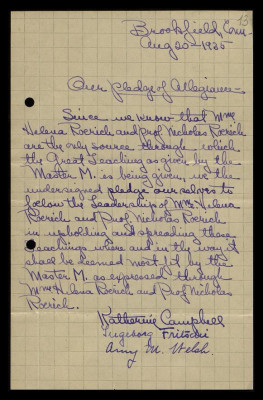 13
Brookfield, Conn
Aug 20 - 1935
Our pledge of Allegiance.
Since we know that Mme
Helena Roerich and prof Nicholas Roerich
are the only source through which
the Great Teaching as given by the
Master M. is being given, we the
undersigned pledge ourselves to
follow the Leadership of Mme Helena
Roerich and Prof Nicholas Roerich
in upholding and spreading these
Teachings where and in the way it
shall be deemed most fit by the
Master M. as expressed through
Mme Helena Roerich and Prof Nicholas
Roerich.
Katherine Campbell
Ingeborg Fritzschi
Amy M. Welsh.